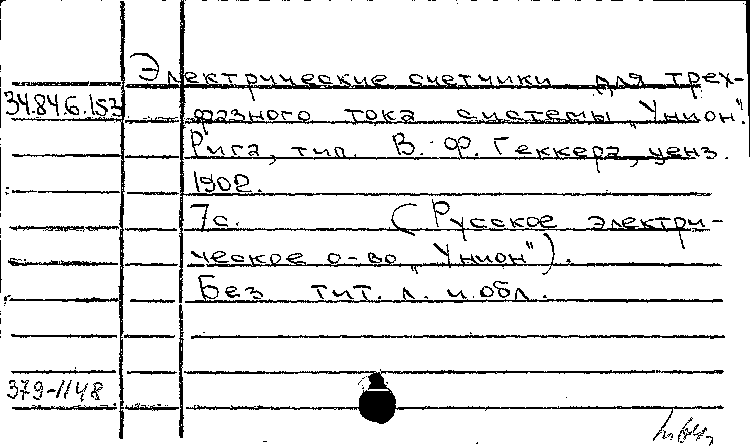 Электрические счетчики для трех-
34.84.6.153 фазного тока системы „Унион".
Рига, тип. В. Ф. Геккера, ценз.
1902.
7с. (Русское электри-
ческое о-во „Унион").
Без тит. л. и обл.
379-1148